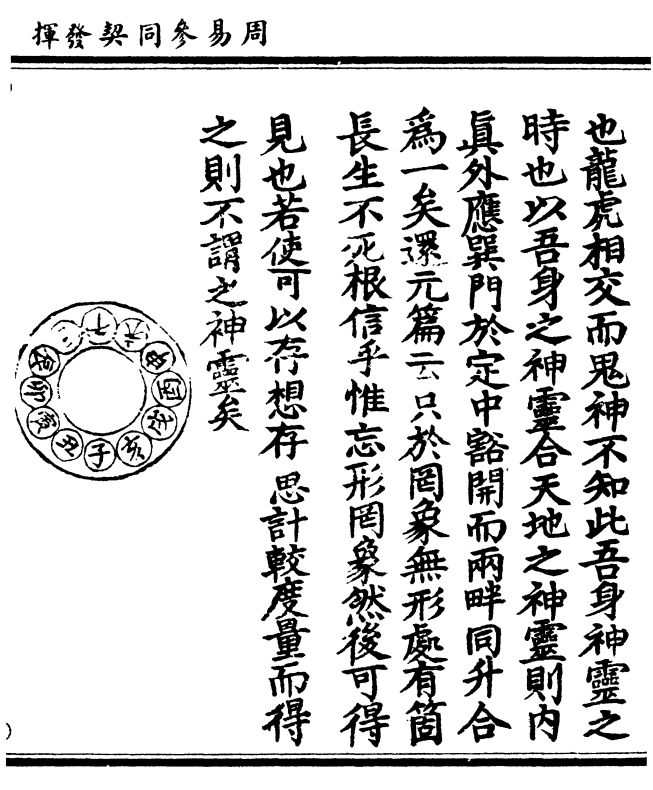 周易參同契發揮
也龍虎相交而鬼神不知此吾身神靈之
時也以吾身之神靈合天地之神靈則内
眞外應巽門於定中豁開而兩畔同升合
爲一矣還元篇云只於罔象無形處有箇
長生不死根信乎惟忘形罔象然後可得
見也若使可以存想存思計較度量而得
之則不謂之神靈矣
子
亥
戌
酉
申
未
午
巳
辰
卯
寅
丑